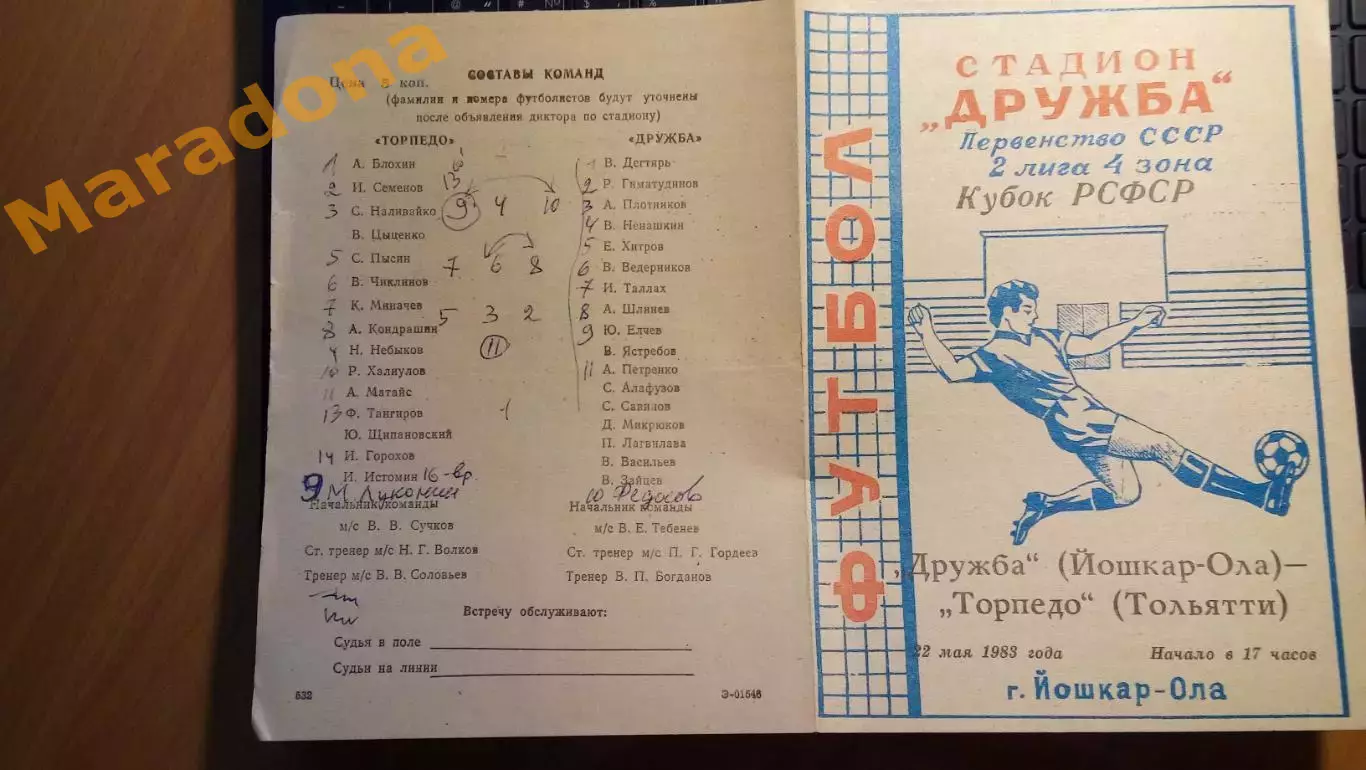 Maradona
Цена 5 коп.
СОСТАВЫ КОМАНД
(фамилии и номера футболистов будут уточнены
после объявления диктора по стадиону)
«ТОРПЕДО»
1 А. Блохин
2 И. Семенов
3 С. Наливайко
В. Цыценко
5 С. Пысин
6 В. Чиклинов
7 К. Миначев
8 А. Кондрашин
4 Н. Небыков
10 Р. Халиулов
11 А. Матайс
13 Ф. Тангиров
Ю. Щипановский
14 И. Горохов
И. Истомин 16-вр
9 М. Луконин
Начальник команды
м/с В. В. Сучков
Ст. тренер м/с Н. Г. Волков
Тренер м/с В. В. Соловьев
13
9 4 10
7 6 8
5 3 2
11
1
«ДРУЖБА»
1 В. Дегтярь
2 Р. Гиматудинов
3 А. Плотников
4 В. Ненашкин
5 Е. Хитров
6 В. Ведерников
7 И. Таллах
8 А. Шлинев
9 Ю. Елчев
В. Ястребов
11 А. Петренко
С. Алафузов
С. Савилов
Д. Микрюков
П. Лагвилава
В. Васильев
В. Зайцев
10
Начальник команды
м/с В. Е. Тебенев
Ст. тренер м/с П. Г. Гордеев
Тренер В. П. Богданов
Встречу обслуживают:
Судья в поле
Судьи на линии
532
Э-01546
ФУТБОЛ
СТАДИОН
„ДРУЖБА“
Первенство СССР
2 лига 4 зона
Кубок РСФСР
„Дружба“ (Йошкар-Ола)—
„Торпедо“ (Тольятти)
22 мая 1983 года Начало в 17 часов
г. Йошкар-Ола